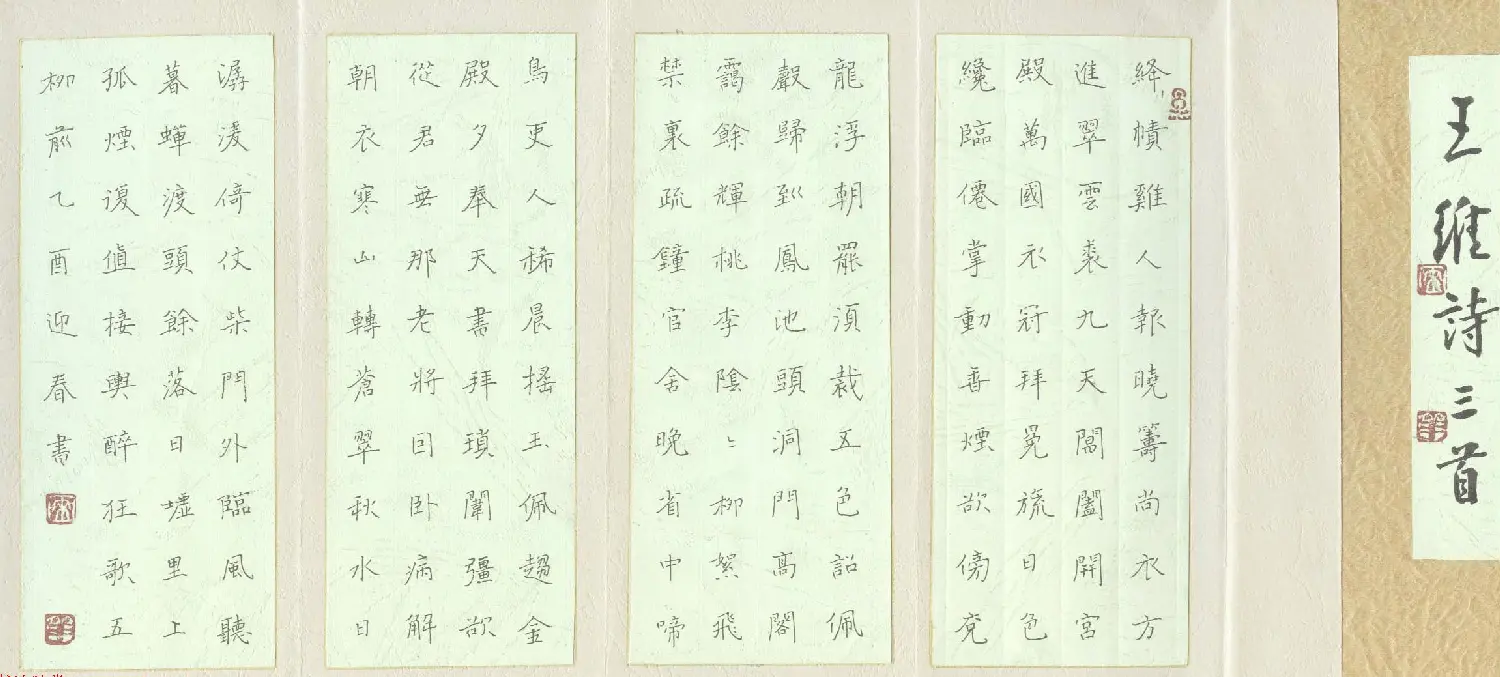 王維詩三首
絳幘雞人報曉籌尚衣方
進翠雲裘九天閶闔開宮
殿萬國衣冠拜冕旒日色
纔臨僊掌動香煙欲傍袞
龍浮朝罷須裁五色詔佩
聲歸到鳳池頭洞門高閣
靄餘輝桃李陰〻柳絮飛
禁裏疏鐘官舍晚省中啼
鳥更人稀晨搖玉佩趨金
殿夕奉天書拜瑣闈彊欲
從君無那老將因卧病解
朝衣寒山轉蒼翠秋水日
潺湲倚仗柴門外臨風聽
暮蟬渡頭餘落日墟里上
孤煙復值接輿醉狂歌五
柳前乙酉迎春書